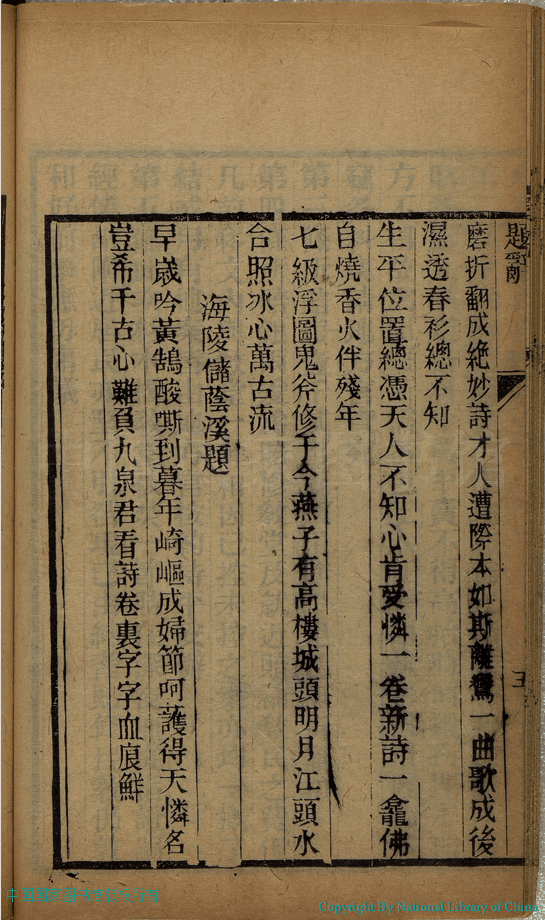 題辭
五
磨折翻成絶妙詩才人遭際本如斯離鸞一曲歌成後
濕透春衫總不知
生平位置總憑天人不知心肯受憐一卷新詩一龕佛
自燒香火伴殘年
七級浮圖鬼斧修于今燕子有高樓城頭明月江頭水
合照冰心萬古流
海陵儲蔭溪題
早歲吟黃鵠酸嘶到暮年崎嶇成婦節呵護得天憐名
豈希千古心難負九泉君看詩卷裏字字血痕鮮
Copyright By National Library of China